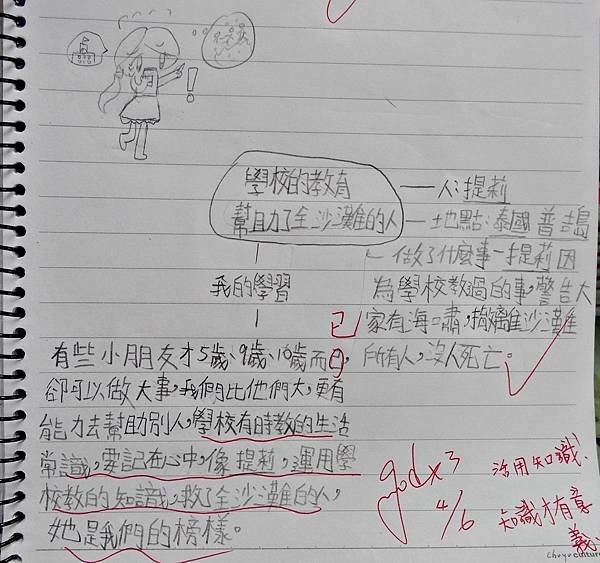 學校的教育
幫助了全沙灘的人
人:提莉
地點:泰國普吉島
做了什麼事-提莉因
為學校教過的事,警告大
家有海嘯,撤離沙灘
所有人,沒人死亡。
我的學習
有些小朋友才5歲、9歲、10歲而日,
已
卻可以做大事,我們比他們大,更有
能力去幫助別人,學校有時教的生活
常識,要記在心中,像提莉,運用學
校教的知識,救了全沙灘的人,
她是我們的榜樣。
god×3
4/6
活用知識!
知識才有意
義